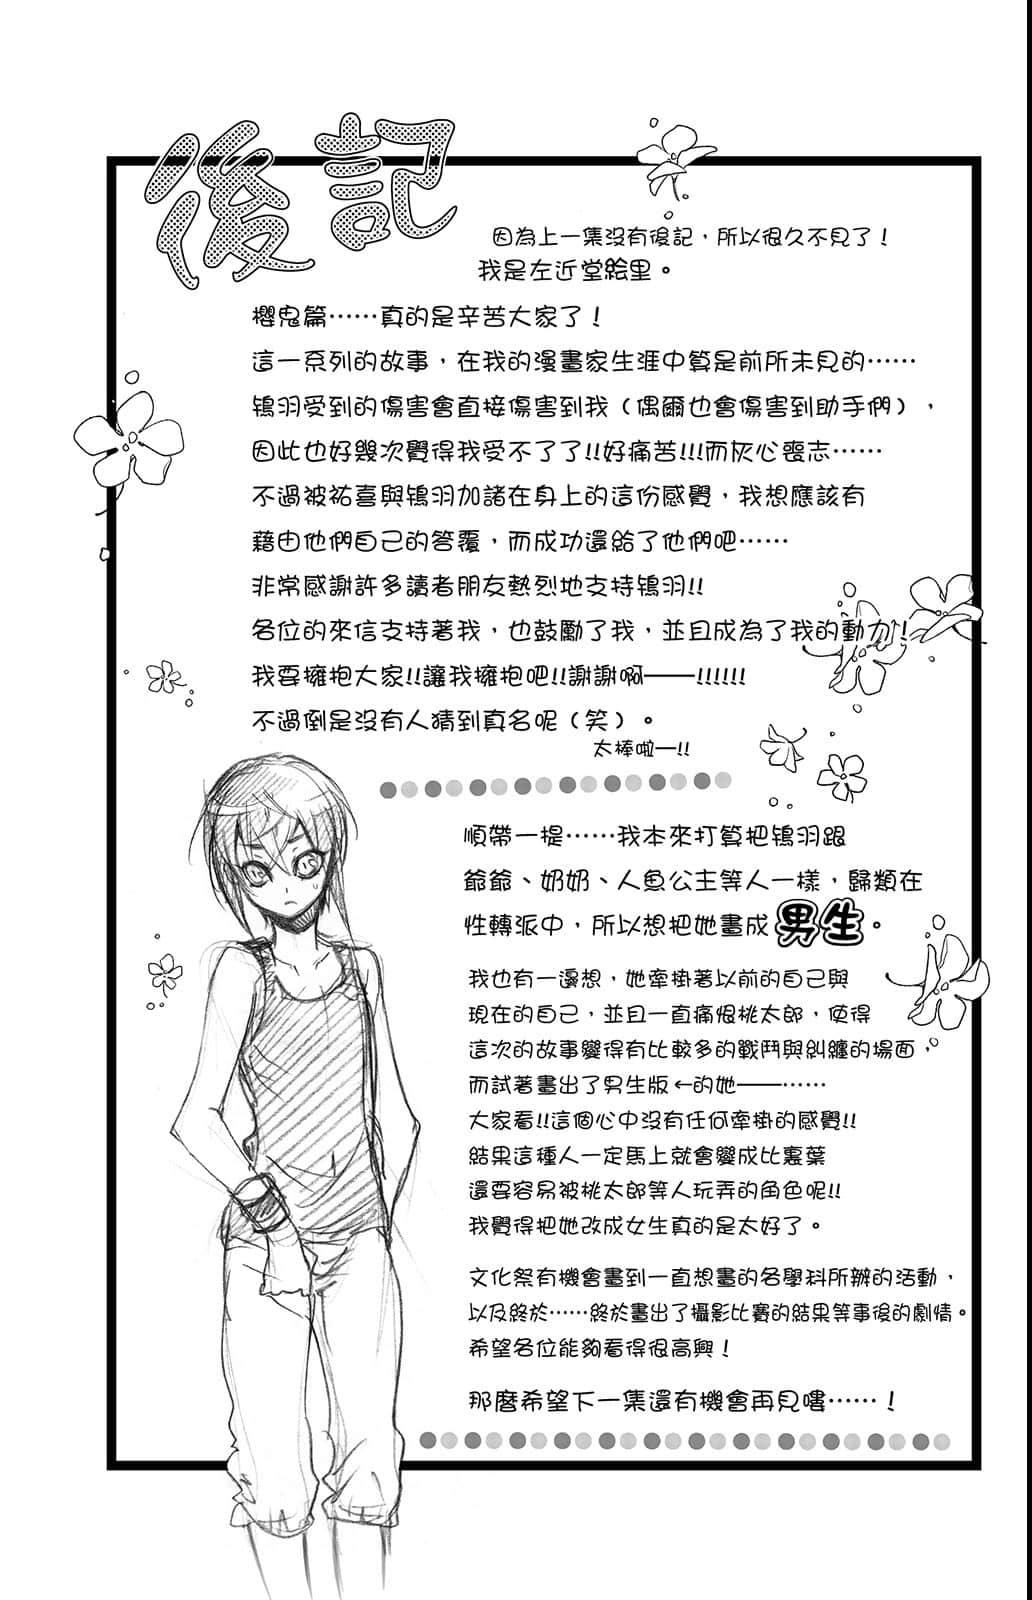 後記
因為上一集沒有後記，所以很久不見了！
我是左近堂絵里。
櫻鬼篇……真的是辛苦大家了！
這一系列的故事，在我的漫畫家生涯中算是前所未見的……
鴇羽受到的傷害會直接傷害到我（偶爾也會傷害到助手們），
因此也好幾次覺得我受不了了!!好痛苦!!!而灰心喪志……
不過被祐喜與鴇羽加諸在身上的這份感覺，我想應該有
藉由他們自己的答覆，而成功還給了他們吧……
非常感謝許多讀者朋友熱烈地支持鴇羽!!
各位的來信支持著我，也鼓勵了我，並且成為了我的動力！
我要擁抱大家!!讓我擁抱吧!!謝謝啊——!!!!!!
不過倒是沒有人猜到真名呢（笑）。
太棒啦—!!
順帶一提……我本來打算把鴇羽跟
爺爺、奶奶、人魚公主等人一樣，歸類在
性轉派中，所以想把她畫成男生。
我也有一邊想，她牽掛著以前的自己與
現在的自己，並且一直痛恨桃太郎，使得
這次的故事變得有比較多的戰鬥與糾纏的場面，
而試著畫出了男生版←的她——……
大家看!!這個心中沒有任何牽掛的感覺!!
結果這種人一定馬上就會變成比裏葉
還要容易被桃太郎等人玩弄的角色呢!!
我覺得把她改成女生真的是太好了。
文化祭有機會畫到一直想畫的各學科所辦的活動，
以及終於……終於畫出了攝影比賽的結果等事後的劇情。
希望各位能夠看得很高興！
那麼希望下一集還有機會再見嘍……！